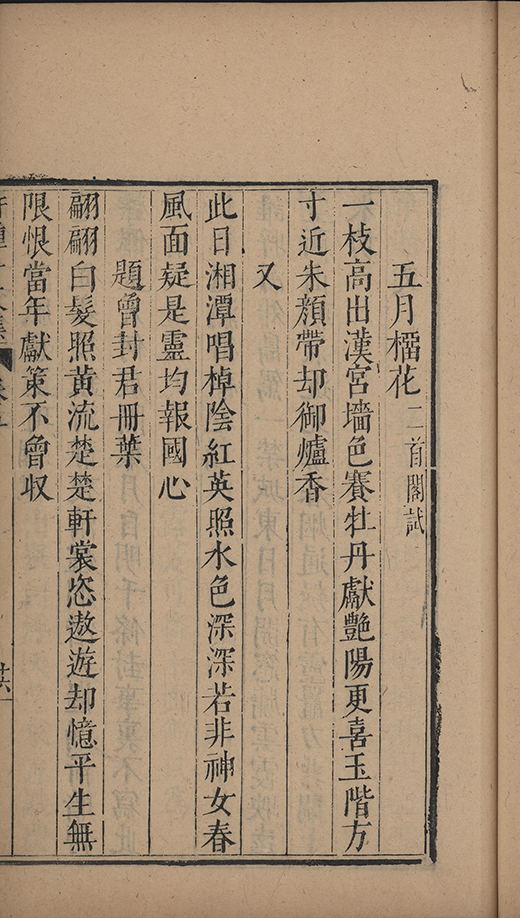 五月榴花二首閣試
一枝高出漢宮墻色賽牡丹獻艷陽更喜玉階方
寸近朱顏帶却御爐香
又
此日湘潭唱棹陰紅英照水色深深若非神女春
風面疑是靈均報國心
題曾封君冊葉
翩翩白髮照黃流楚楚軒裳恣遨遊却憶平生無
限恨當年獻策不曾収